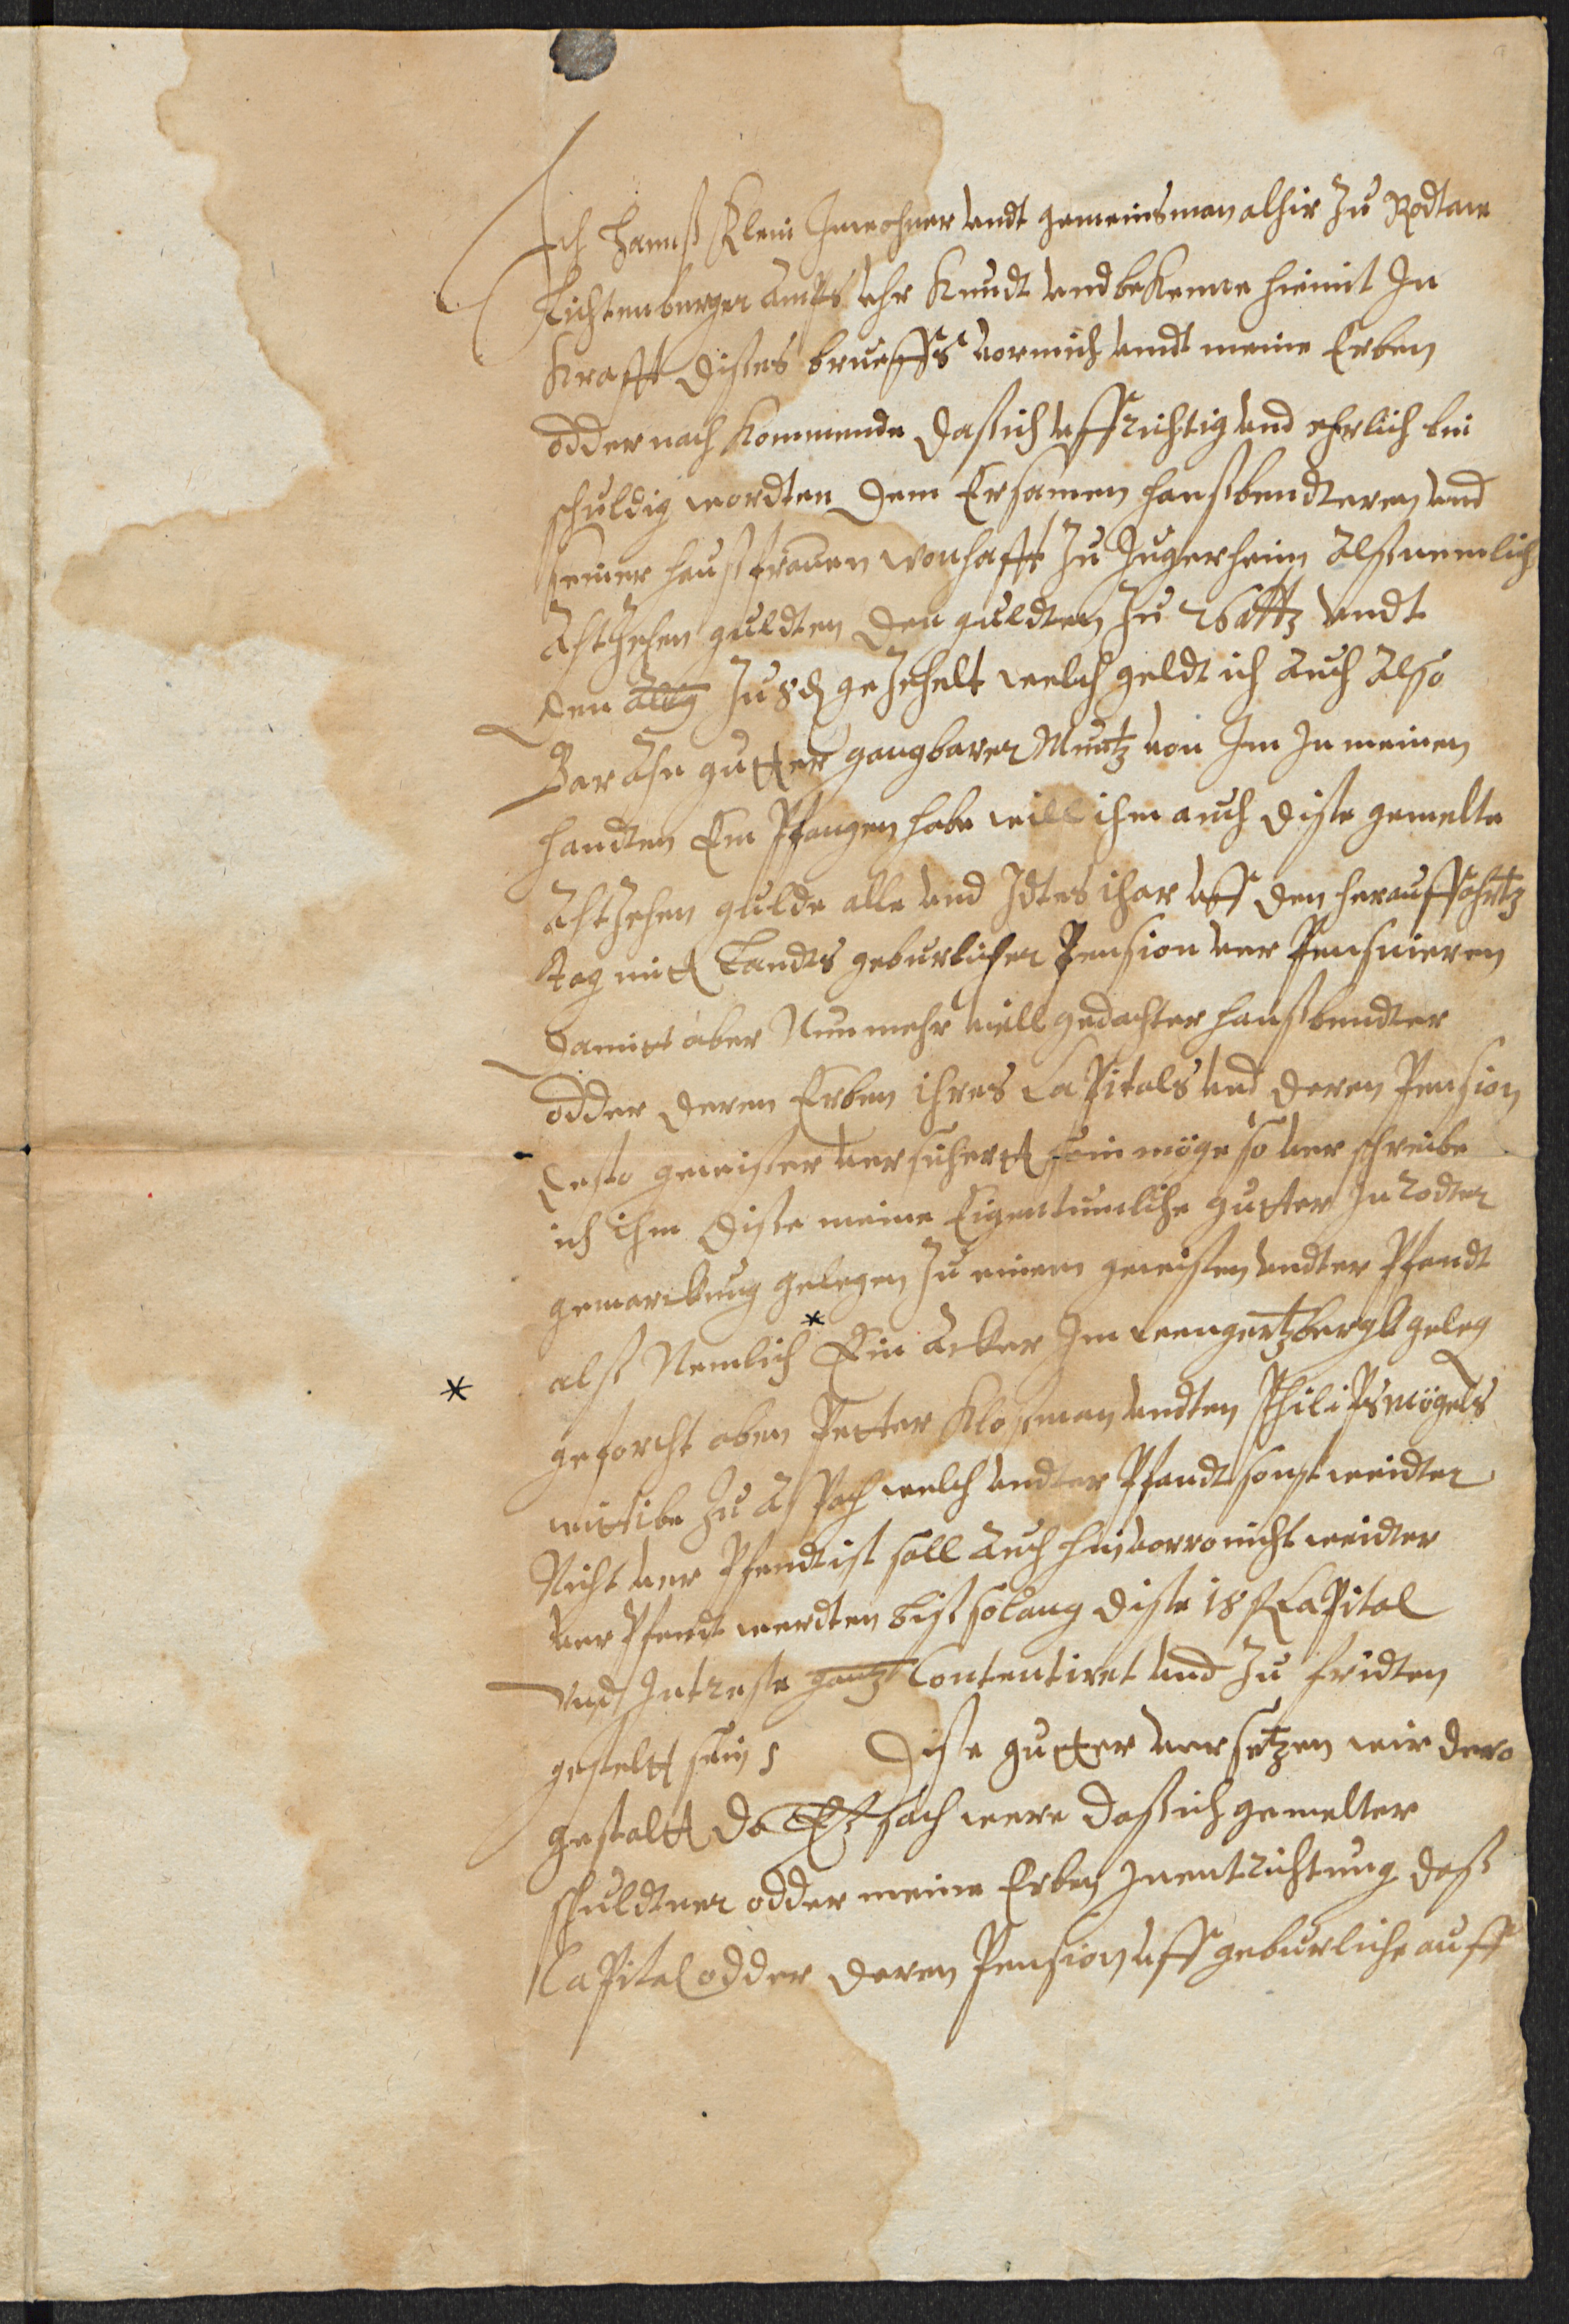 Ich Hannß Klein Inwohner undt gemeinsman alhir Zu Rodtaw
Lichtenberger Ampts uhr Kundt und bekenne hiemit In
Krafft dißes brueffs vor mich undt meine Erben
odder nach Kommende daß ich uffrichtig und ehrlich bin
schuldig wordten dem Ersamen hanß bendteren und
seiner haußfrauen wonhafft Zu Jugenheim Alß nemlich
Acht Zehen guldten den guldten Zu 26 albz undt
den albg Zu 8 d geZehelt welch geldt ich auch Also
Bar Ahn gutter gangbarer Muntz von Im In meinen
handten Em Pfangen habe will ihm auch diße gemelte
Acht Zehen gulde alle und Idtes ihar uff den herauffohrtz
tag mitt Landts geburlicher Pension ver Pensnieren
Damit aber Nun mehr wiell gedachter hanß bendter
odder deren Erben ihres CaPitals und deren Pension
desto gewisser versichertt sein möge so ver schreibe
ich Ihm diße meine Eigentumliche gutter In rodter
gemarckung gelegen Zu einem gewissen undter Pfandt
alß Nemlich * Ein Acker Im wengertzbergk geleg
* geforcht oben Petter Kloßman undten PhiliPs Mögels
wittibe Zu As Pach welch undter Pfandt sonst weidter
Nicht ver Pfendt ist soll Auch hin vorro nicht weidter
ver Pfendt werdten biß solang diße 18 fl CaPital
und Intreße gantz Contentiret und Zu fridten
gestelt sein Diße gutter versetzen wir dero
gestaltt da Eß sach were daß ich gemelter
schuldtner odder meine Erben In entrichtung deß
CaPital odder deren Pension uff geburliche auff